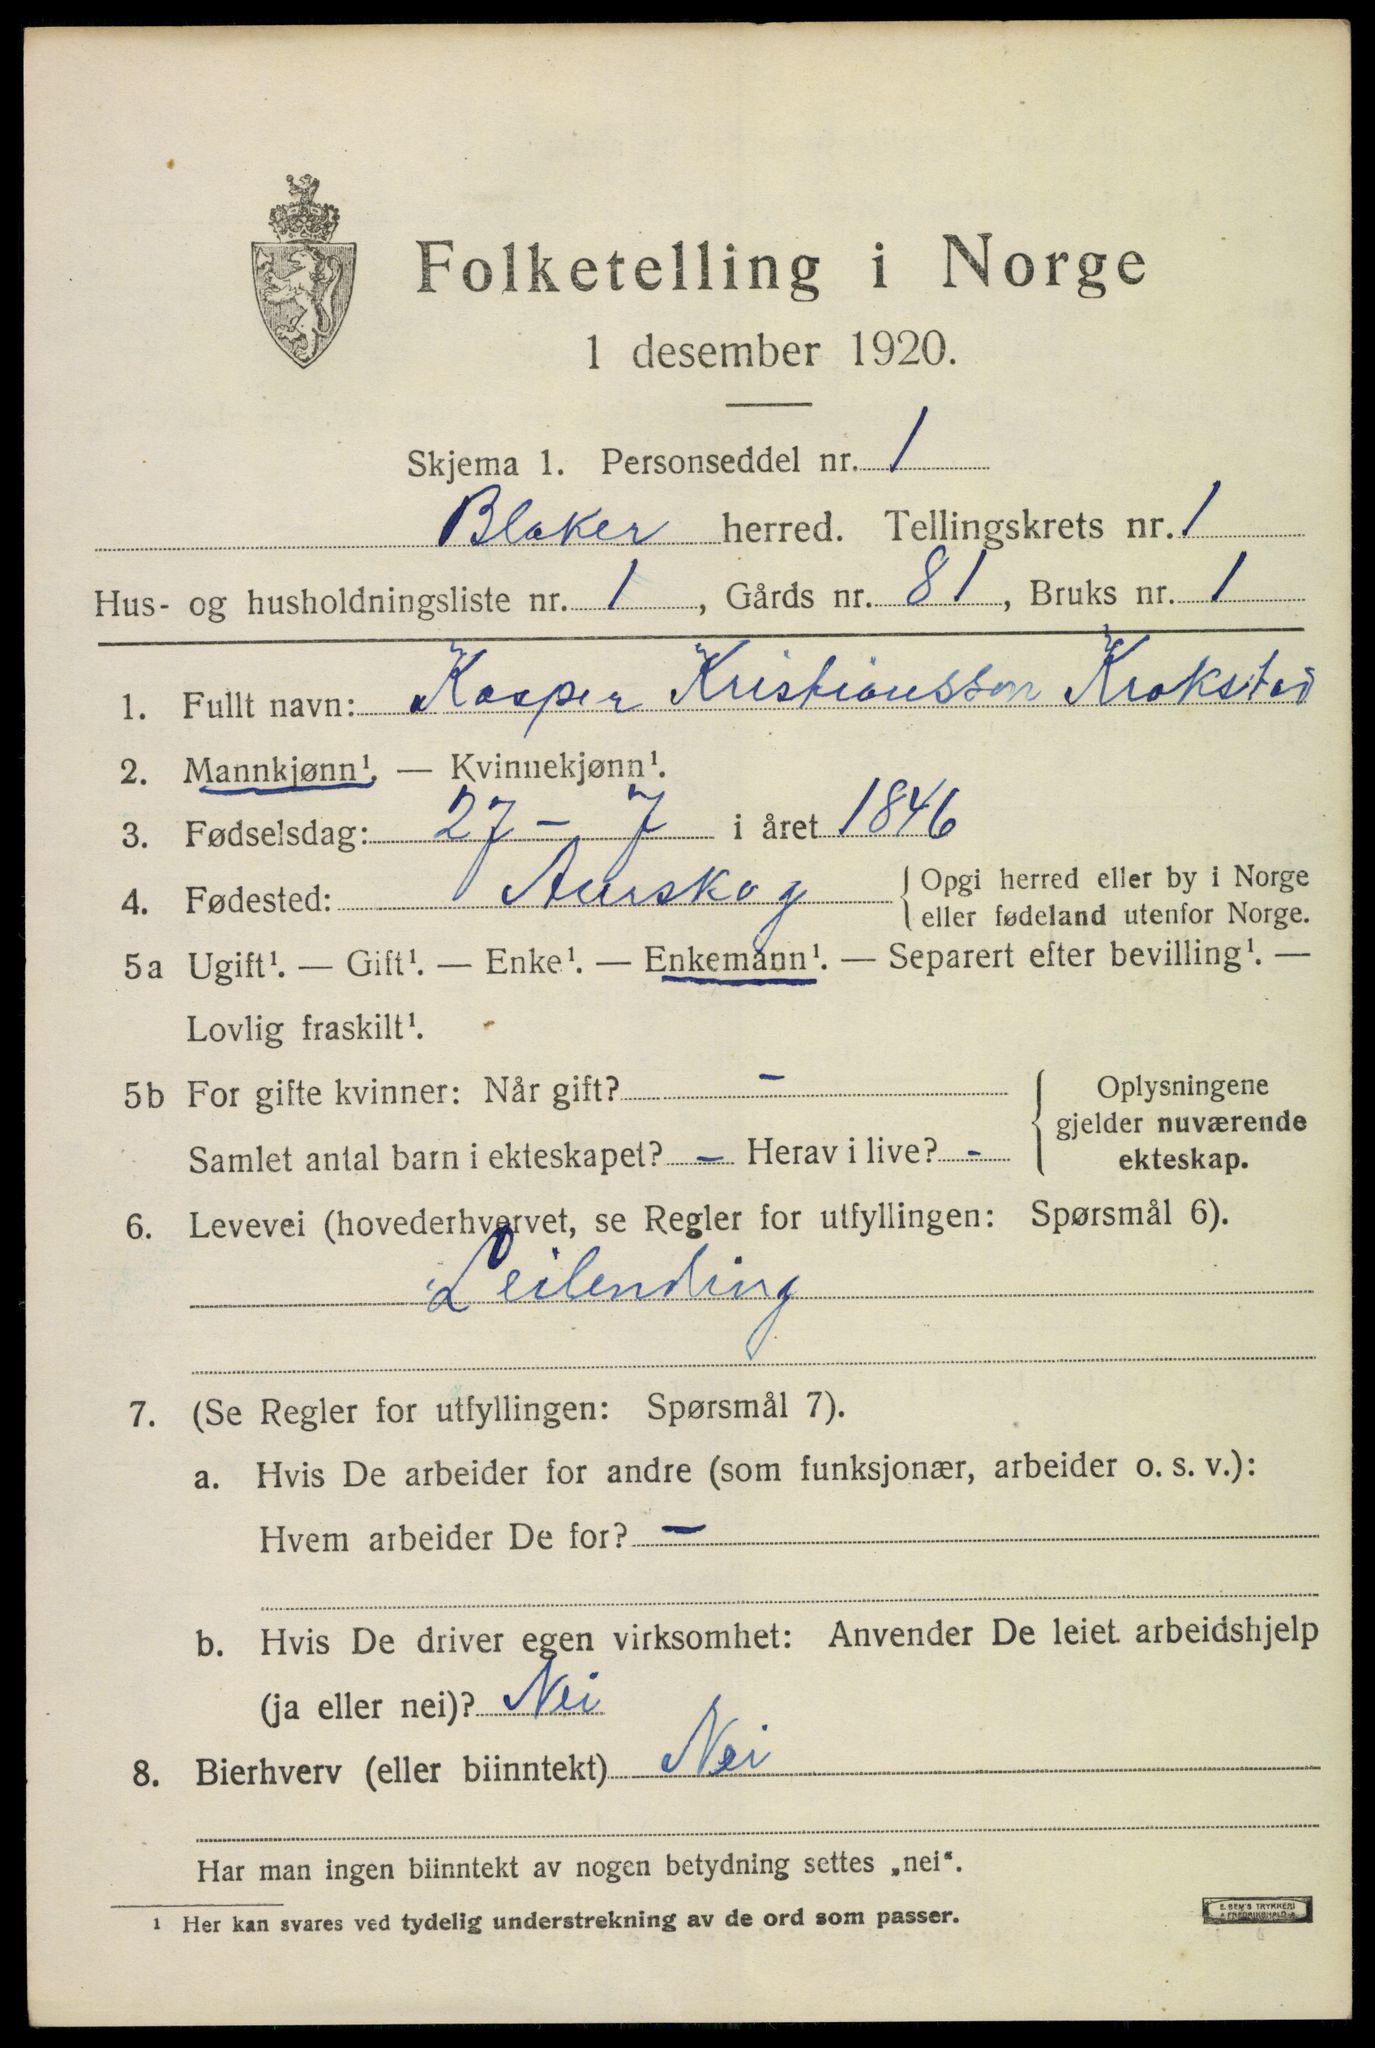 Folketelling i Norge
1 desember 1920.
Skjema 1. Personseddel nr. 1
Blaker herred. Tellingskrets nr. 1
Hus- og husholdningsliste nr. 1, Gårds nr. 81, Bruks nr. 1
1. Fullt navn: Kasper Kristiansson Krokstad
2. Mannkjønn¹. — Kvinnekjønn¹.
3. Fødselsdag: 27 – 7 i året 1846
4. Fødested: Aurskog { Opgi herred eller by i Norge
eller fødeland utenfor Norge.
5a Ugift¹. — Gift¹. — Enke¹. — Enkemann¹. — Separert efter bevilling¹. —
Lovlig fraskilt¹.
5b For gifte kvinner: Når gift? –
Samlet antal barn i ekteskapet? – Herav i live? -
{ Oplysningene
gjelder nuværende
ekteskap.
6. Levevei (hovederhvervet, se Regler for utfyllingen: Spørsmål 6).
Leilending
7. (Se Regler for utfyllingen: Spørsmål 7).
a. Hvis De arbeider for andre (som funksjonær, arbeider o. s. v.):
Hvem arbeider De for? –
b. Hvis De driver egen virksomhet: Anvender De leiet arbeidshjelp
(ja eller nei)? Nei
8. Bierhverv (eller biinntekt) Nei
Har man ingen biinntekt av nogen betydning settes „nei“.
¹ Her kan svares ved tydelig understrekning av de ord som passer.
E. SEM'S TRYKKERI
FREDRIKSHALD